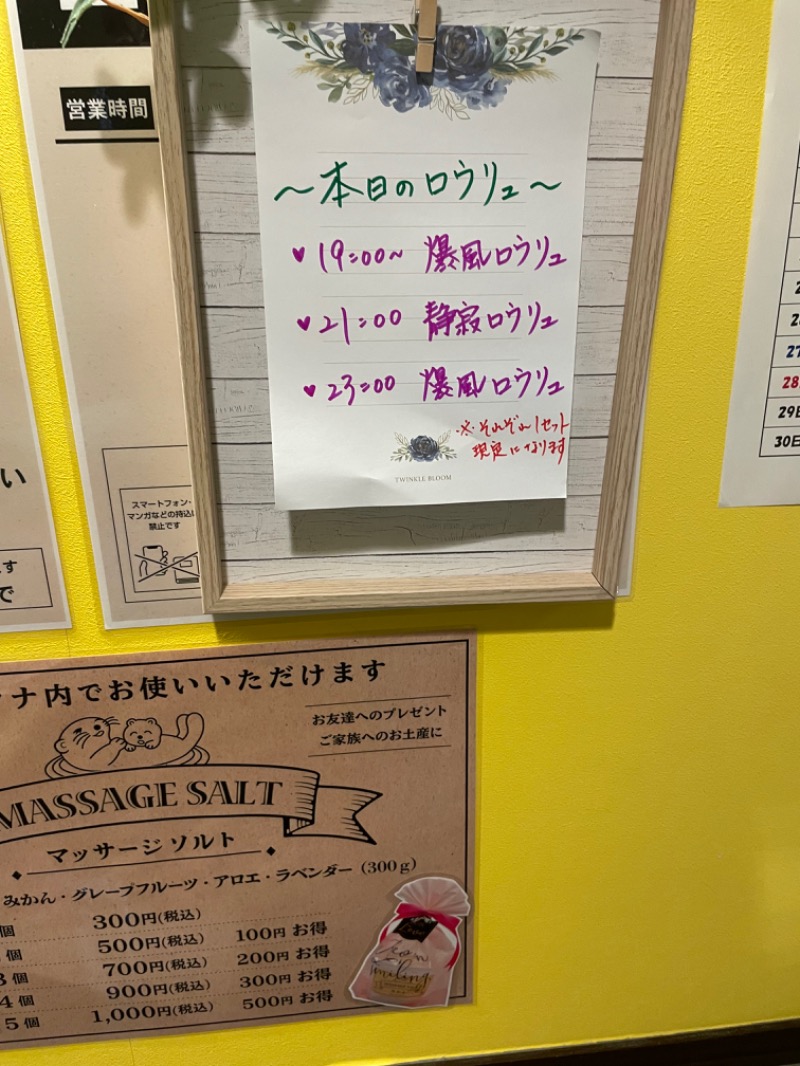 営業時間
～本日のロウリュ～
♥19:00～ 爆風ロウリュ
♥21:00 静寂ロウリュ
♥23:00 爆風ロウリュ
※それぞれ1セット
限定になります
TWINKLE BLOOM
い
スマートフォン・
マンガなどの持込は
禁止です
ます
で
27
28
29日
30日
ナ内でお使いいただけます
お友達へのプレゼント
ご家族へのお土産に
MASSAGE SALT
マッサージソルト
みかん・グレープフルーツ・アロエ・ラベンダー(300g)
個 300円(税込)
個 500円(税込) 100円 お得
3個 700円(税込) 200円 お得
4個 900円(税込) 300円 お得
5個 1,000円(税込) 500円 お得